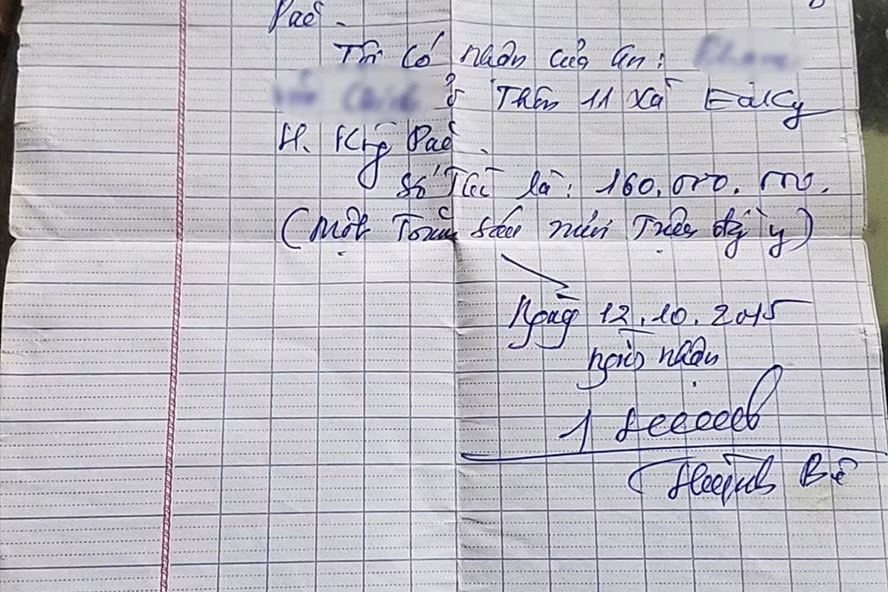 Pắc.
Tôi có nhận của an:
ở Thôn 11 xã EaKly
H. Krông Pắc.
Số Tiền là: 160.000.000.
(Một Trăm sáu mươi Triệu đồng y)
Ngày 12.10.2015
người nhận
Huỳnh Bê